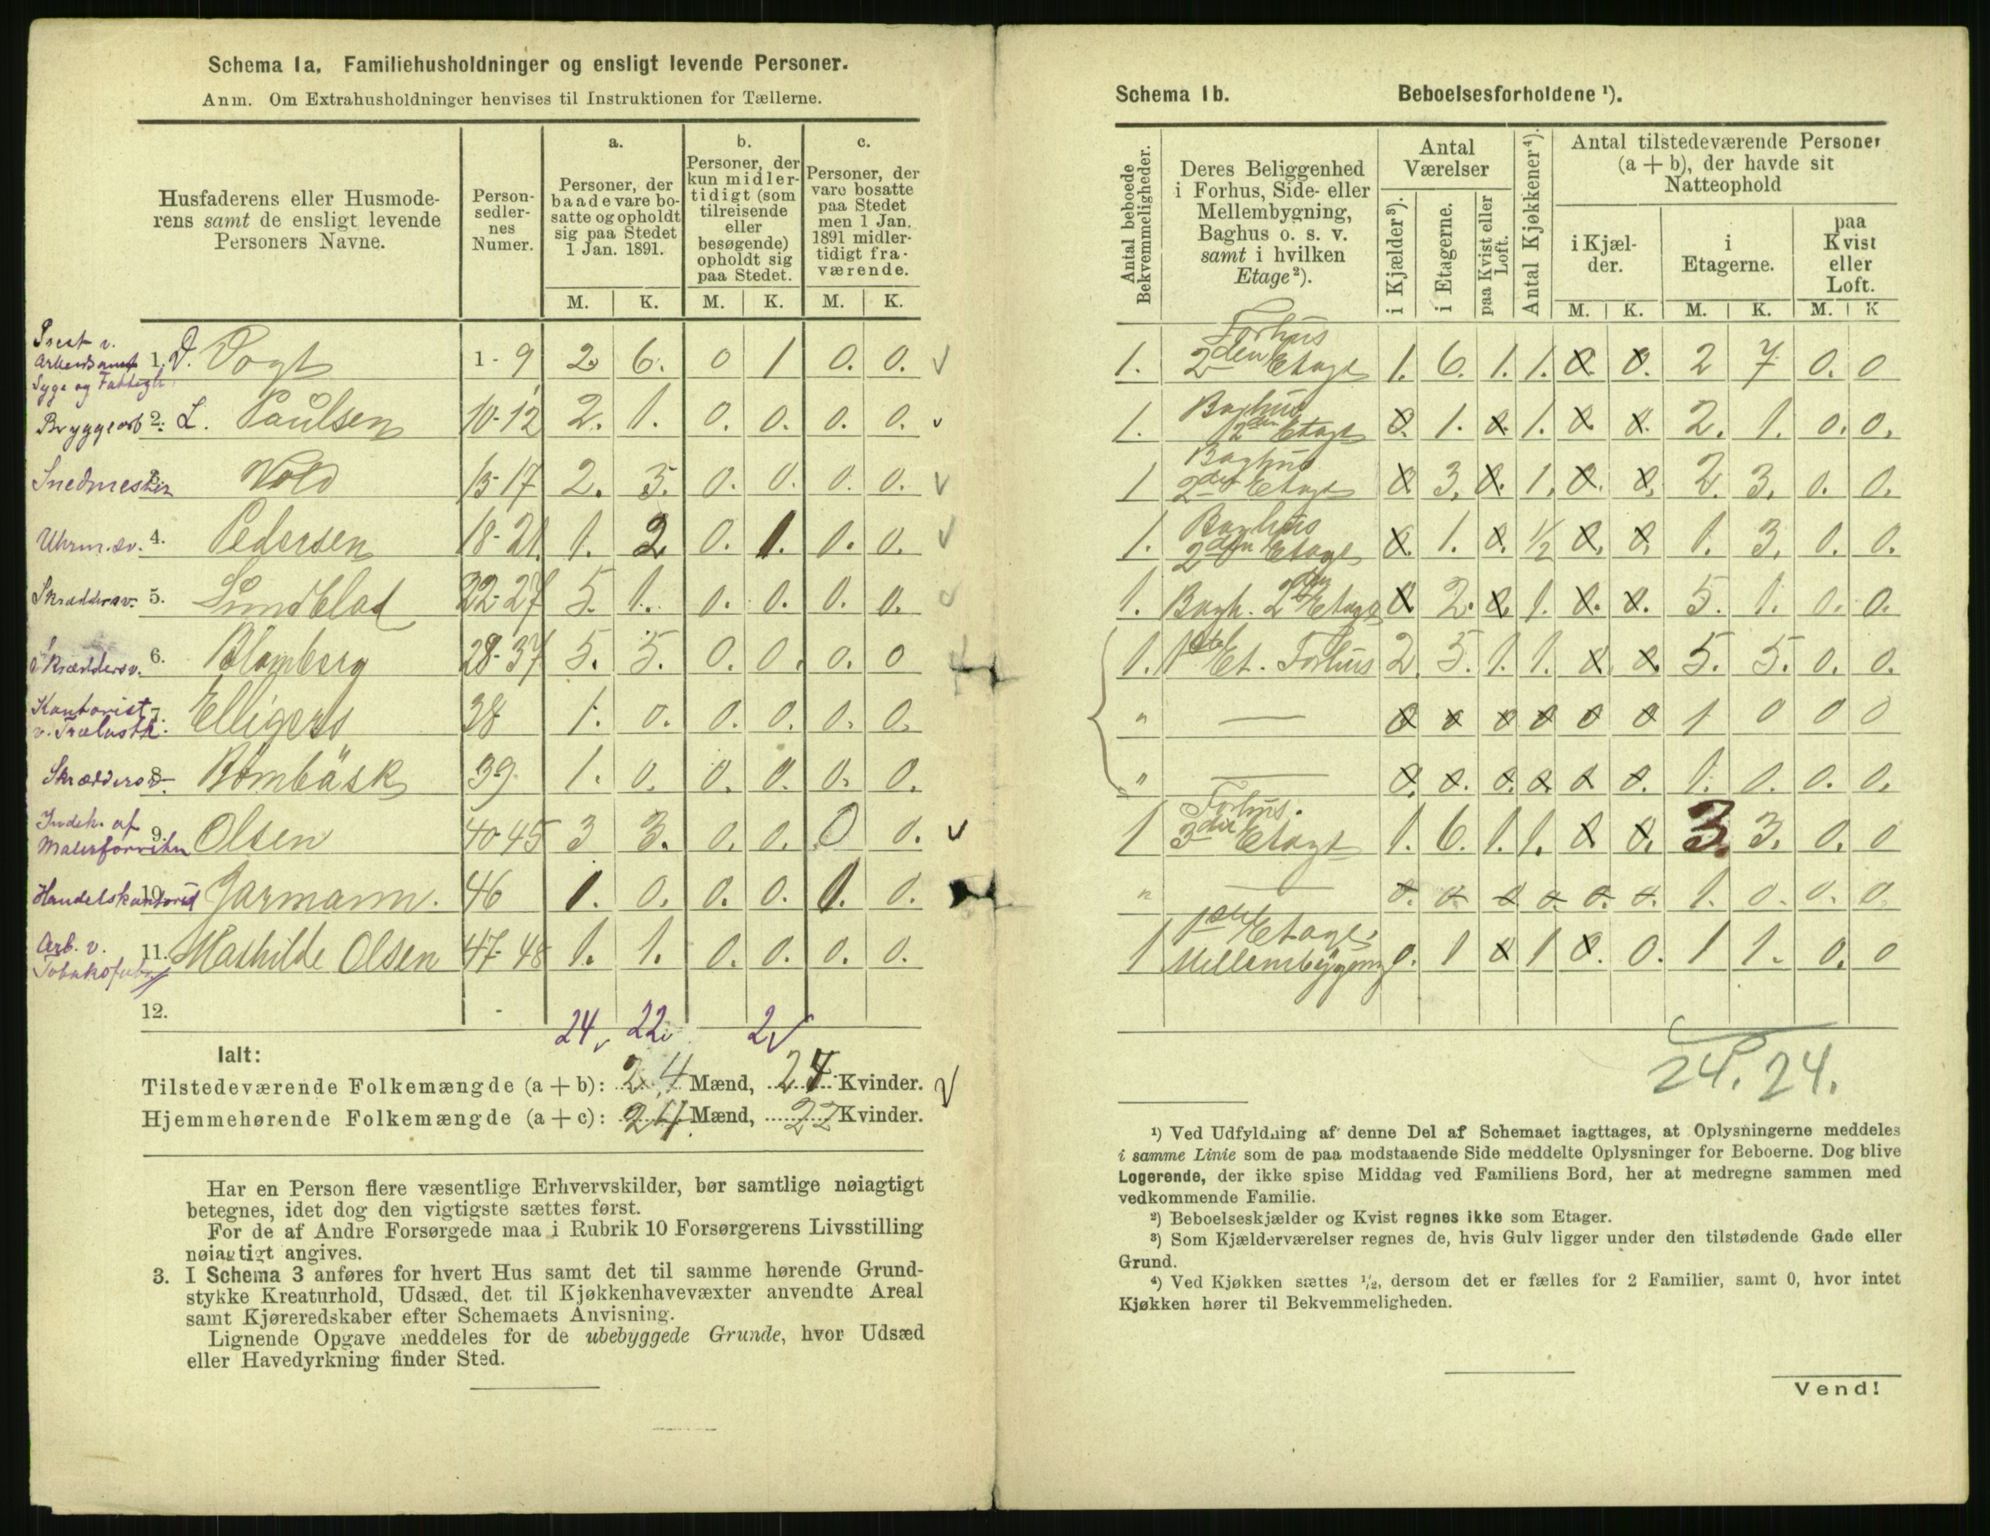 Schema 1a. Familiehusholdninger og ensligt levende Personer.
Anm. Om Extrahusholdninger henvises til Instruktionen for Tællerne.
Husfaderens eller Husmoderens samt de ensligt levende Personers Navne.
Personsedlernes Numer.
a.
Personer, der baade vare bosatte og opholdt sig paa Stedet 1 Jan. 1891.
b.
Personer, der kun midlertidigt (som tilreisende eller besøgende) opholdt sig paa Stedet.
c.
Personer, der vare bosatte paa Stedet men 1 Jan. 1891 midlertidigt fraværende.
M. K. M. K. M. K.
1. D. Vogt 1-9 2. 6. 0 1 0. 0.
Bryggearb 2. L. Paulsen 10-12 2. 1. 0. 0. 0. 0.
Snedmester Vold 13-17 2. 3. 0. 0. 0. 0.
Uhrm.sv. 4. Pedersen 18-21 1. 2 0. 1. 0. 0.
Skræddersv. 5. Lundblad 22-27 5. 1. 0. 0. 0. 0.
Skræddersv. 6. Blomberg 28-37 5. 5. 0. 0. 0. 0
Kontorist
v. Trælasth. 7. Elligers 38 1. 0. 0. 0. 0. 0.
Skræddersv. 8. Bombäsk 39. 1. 0. 0. 0. 0. 0.
Indeh. af
Malerforretn 9. Olsen 40-45 3 3. 0. 0. 0 0.
Handelskontorist 10. Jarmann. 46 1. 0. 0. 0. 0. 0.
Arb. v.
Tobaksfabr. 11. Mathilde Olsen 47-48 1. 1. 0. 0. 0. 0.
12. -
24 22 2
Ialt:
Tilstedeværende Folkemængde (a + b): 24 Mænd, 24 Kvinder.
Hjemmehørende Folkemængde (a + c): 24 Mænd, 22 Kvinder.
Har en Person flere væsentlige Erhvervskilder, bør samtlige nøiagtigt
betegnes, idet dog den vigtigste sættes først.
For de af Andre Forsørgede maa i Rubrik 10 Forsørgerens Livsstilling
nøiagtigt angives.
3. I Schema 3 anføres for hvert Hus samt det til samme hørende Grund-
stykke Kreaturhold, Udsæd, det til Kjøkkenhavevæxter anvendte Areal
samt Kjøreredskaber efter Schemaets Anvisning.
Lignende Opgave meddeles for de ubebyggede Grunde, hvor Udsæd
eller Havedyrkning finder Sted.
Schema 1b. Beboelsesforholdene ¹).
Antal beboede Bekvemmeligheder.
Deres Beliggenhed i Forhus, Side- eller Mellembygning, Baghus o. s. v. samt i hvilken Etage ²).
Antal Værelser
i Kjælder ³).
i Etagerne.
paa Kvist eller Loft.
Antal Kjøkkener ⁴).
Antal tilstedeværende Personer (a + b), der havde sit Natteophold
i Kjælder.
i Etagerne.
paa Kvist eller Loft.
M. K. M. K. M. K
1. Forhus 2den Etage 1. 6. 1. 1. 0. 0. 2 7 0. 0
1. Baghus 2den Etage 0. 1. 0. 1. 0. 0. 2. 1. 0. 0.
1 Baghus 2den Etage 0. 3. 0. 1. 0. 0. 2. 3. 0. 0.
1. Baghus 2den Etage 0. 1. 0. 1/2 0. 0. 1. 3. 0. 0.
1. Bagh. 2den Etage 0. 2. 0. 1. 0. 0. 5. 1. 0. 0.
1. 1ste Et. Forhus 2 5. 1. 1. 0. 0. 5. 5. 0. 0.
" — 0 0 0 0 0 0 1 0 0 0
" — 0. 0. 0. 0. 0. 0. 1. 0. 0. 0.
1 Forhus. 3die Etage 1. 6. 1. 1. 0 0. 3. 3. 0. 0
" — 0. 0. 0 0. 0. 0. 1. 0. 0. 0
1 1ste Etage Mellembygning 0. 1 0 1 0. 0. 1 1. 0. 0
24. 24.
¹) Ved Udfyldning af denne Del af Schemaet iagttages, at Oplysningerne meddeles
i samme Linie som de paa modstaaende Side meddelte Oplysninger for Beboerne. Dog blive
Logerende, der ikke spise Middag ved Familiens Bord, her at medregne sammen med
vedkommende Familie.
²) Beboelseskjælder og Kvist regnes ikke som Etager.
³) Som Kjælderværelser regnes de, hvis Gulv ligger under den tilstødende Gade eller
Grund.
⁴) Ved Kjøkken sættes 1/2, dersom det er fælles for 2 Familier, samt 0, hvor intet
Kjøkken hører til Bekvemmeligheden.
Vend!